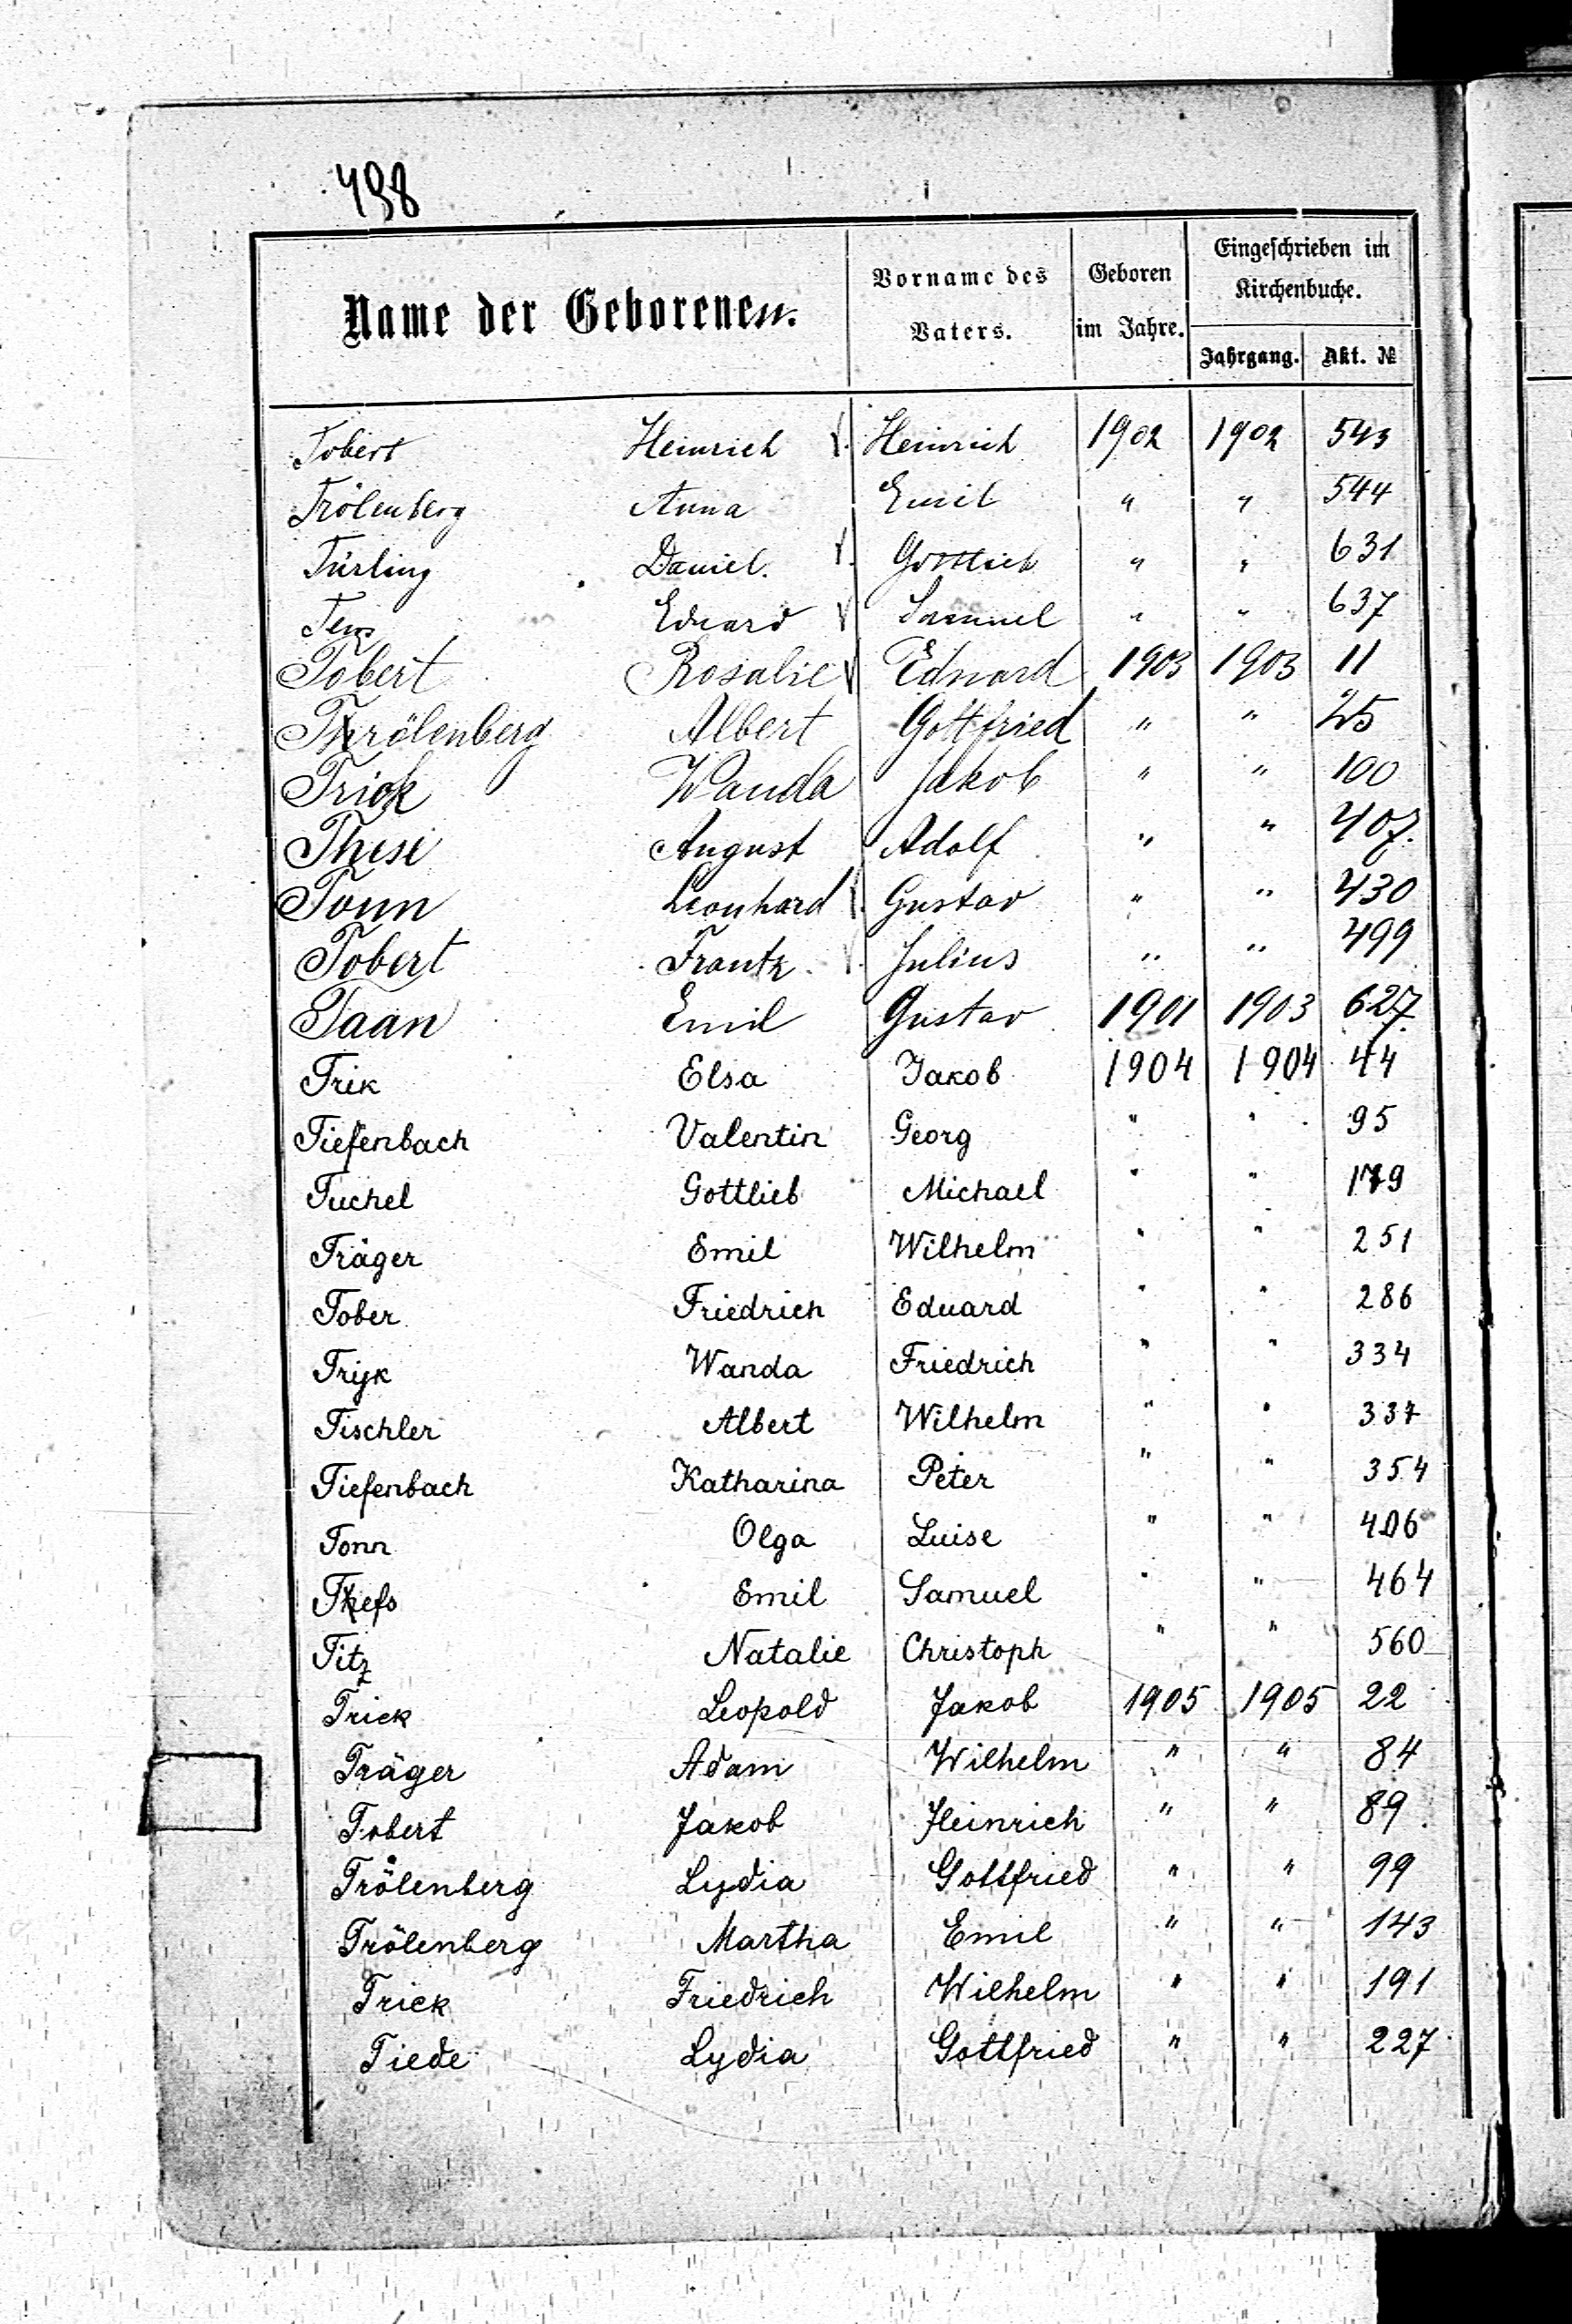 498
Name der Geborenen. Vorname des Vaters. Geboren im Jahre. Eingeschrieben im Kirchenbuche. Jahrgang. Akt. №
Tobert Heinrich Heinrich 1902 1902 543
Trölenberg Anna Emil " " 544
Türling Daniel. Gottlieb " " 631
Eduard Samuel " " 637
Tobert Rosalie Eduard 1903 1903 11
Trölenberg Albert Gottfried " " 25
Trick Wanda Jakob " " 100
These August Adolf " " 407.
Tonn Leonhard Gustav " " 430
Tobert Frantz Julius " " 499
Taan Emil Gustav 1901 1903 627
Trik Elsa Jakob 1904 1904 44
Tiefenbach Valentin Georg " " 95
Tuchel Gottlieb Michael " " 179
Träger Emil Wilhelm " " 251
Tober Friedrich Eduard " " 286
Trijk Wanda Friedrich " " 334
Tischler Albert Wilhelm " " 337
Tiefenbach Katharina Peter " " 354
Tonn Olga Luise " " 406
Emil Samuel " " 464
Titz Natalie Christoph " " 560
Trick Leopold Jakob 1905 1905 22
Träger Adam Wilhelm " " 84
Tobert Jakob Heinrich " " 89
Trölenberg Lydia Gottfried " " 99
Trölenberg Martha Emil " " 143
Trick Friedrich Wilhelm " " 191
Tiede Lydia Gottfried " " 227